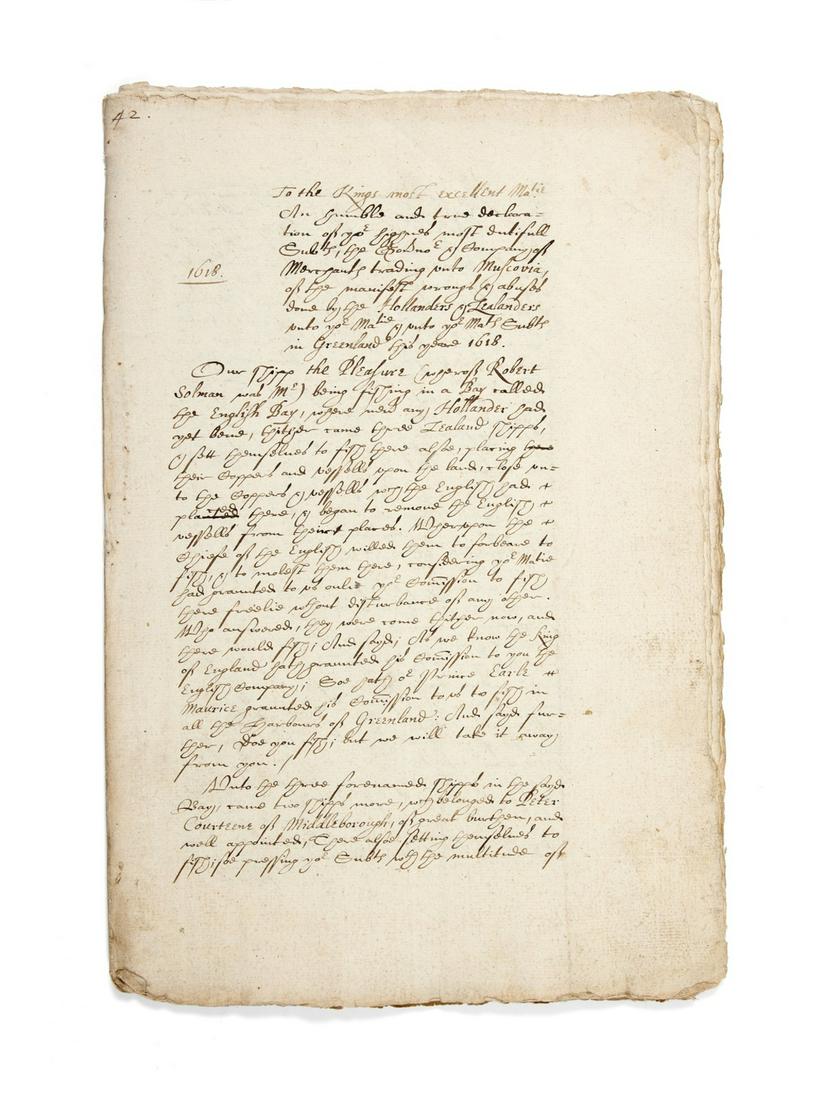 42.
To the Kings most excellent Matie
An humble and true declara=
tion of yor highnes most dutifull
Subts, the Governor & Company of
1618.
Merchants trading unto Muscovia,
of the manifest wrongs & abuses
done by the Hollanders & Zealanders
unto yor Matie & unto yor Mats Subts
in Greenland this yeare 1618.
Our shipp the Pleasure (whereof Robert
Solman was Mr) being fishing in a Bay called
the English Bay, where never any Hollander had
yet bene, thither came three Zealand shipps,
& sett themselves to fish there alsoe, placing there
their Coppers and vessells upon the land, close un=
to the Coppers & vessells wch the English had
placed there, & began to remove the English
vessells from their places. Whereupon the
Chiefe of the English willed them to forbeare to
fish, & to molest them there, considering yor Matie
had graunted to us onlie yor Comission to fish
there freelie wthout disturbance of any other.
Who answered, they were come thither now, and
there would fish; And sayd; As we know the King
of England hath graunted his Comission to you the
English Company; Soe hath or Prince Earle
Maurice graunted his Comission to us to fish in
all the Harbours of Greenland: And sayd fur=
ther, Doe you fish; but we will take it away
from you.
Unto the three forenamed shipps in the sayd
Bay, came two shipps more, wch belonged to Peter
Courteene of Middleborough, of great burthen, and
well appointed, There alsoe setting themselves to
fish; soe pressing yor Subts wth the multitude of